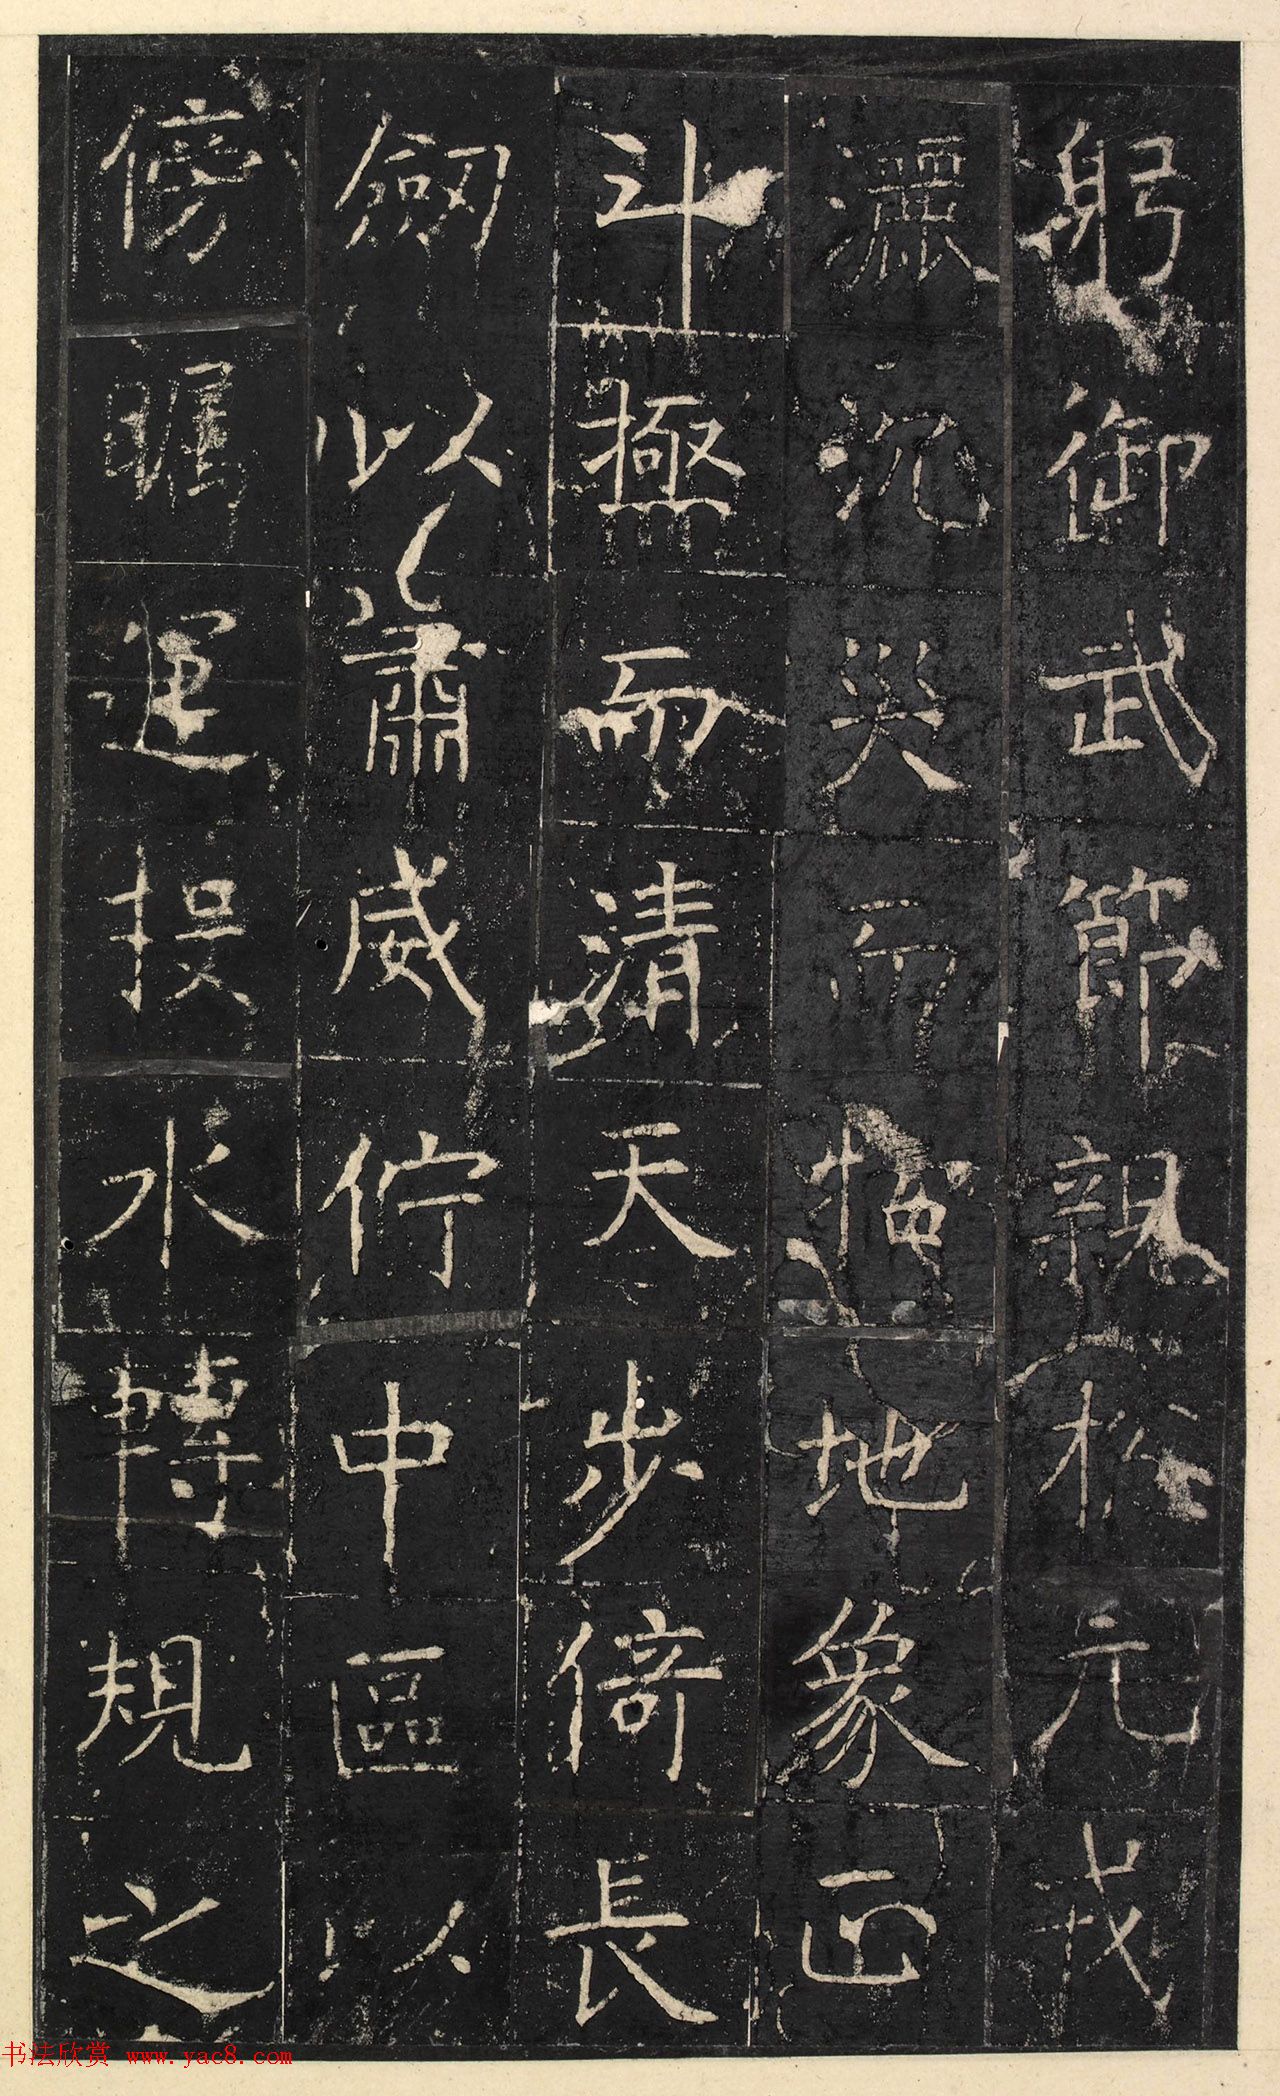 躬御武節親총元戎
灑沉災而掃地象正
斗極而清天步倚長
劒以肅威佇中區以
傍矚運投水轉規之
书法欣赏 www.yac8.com